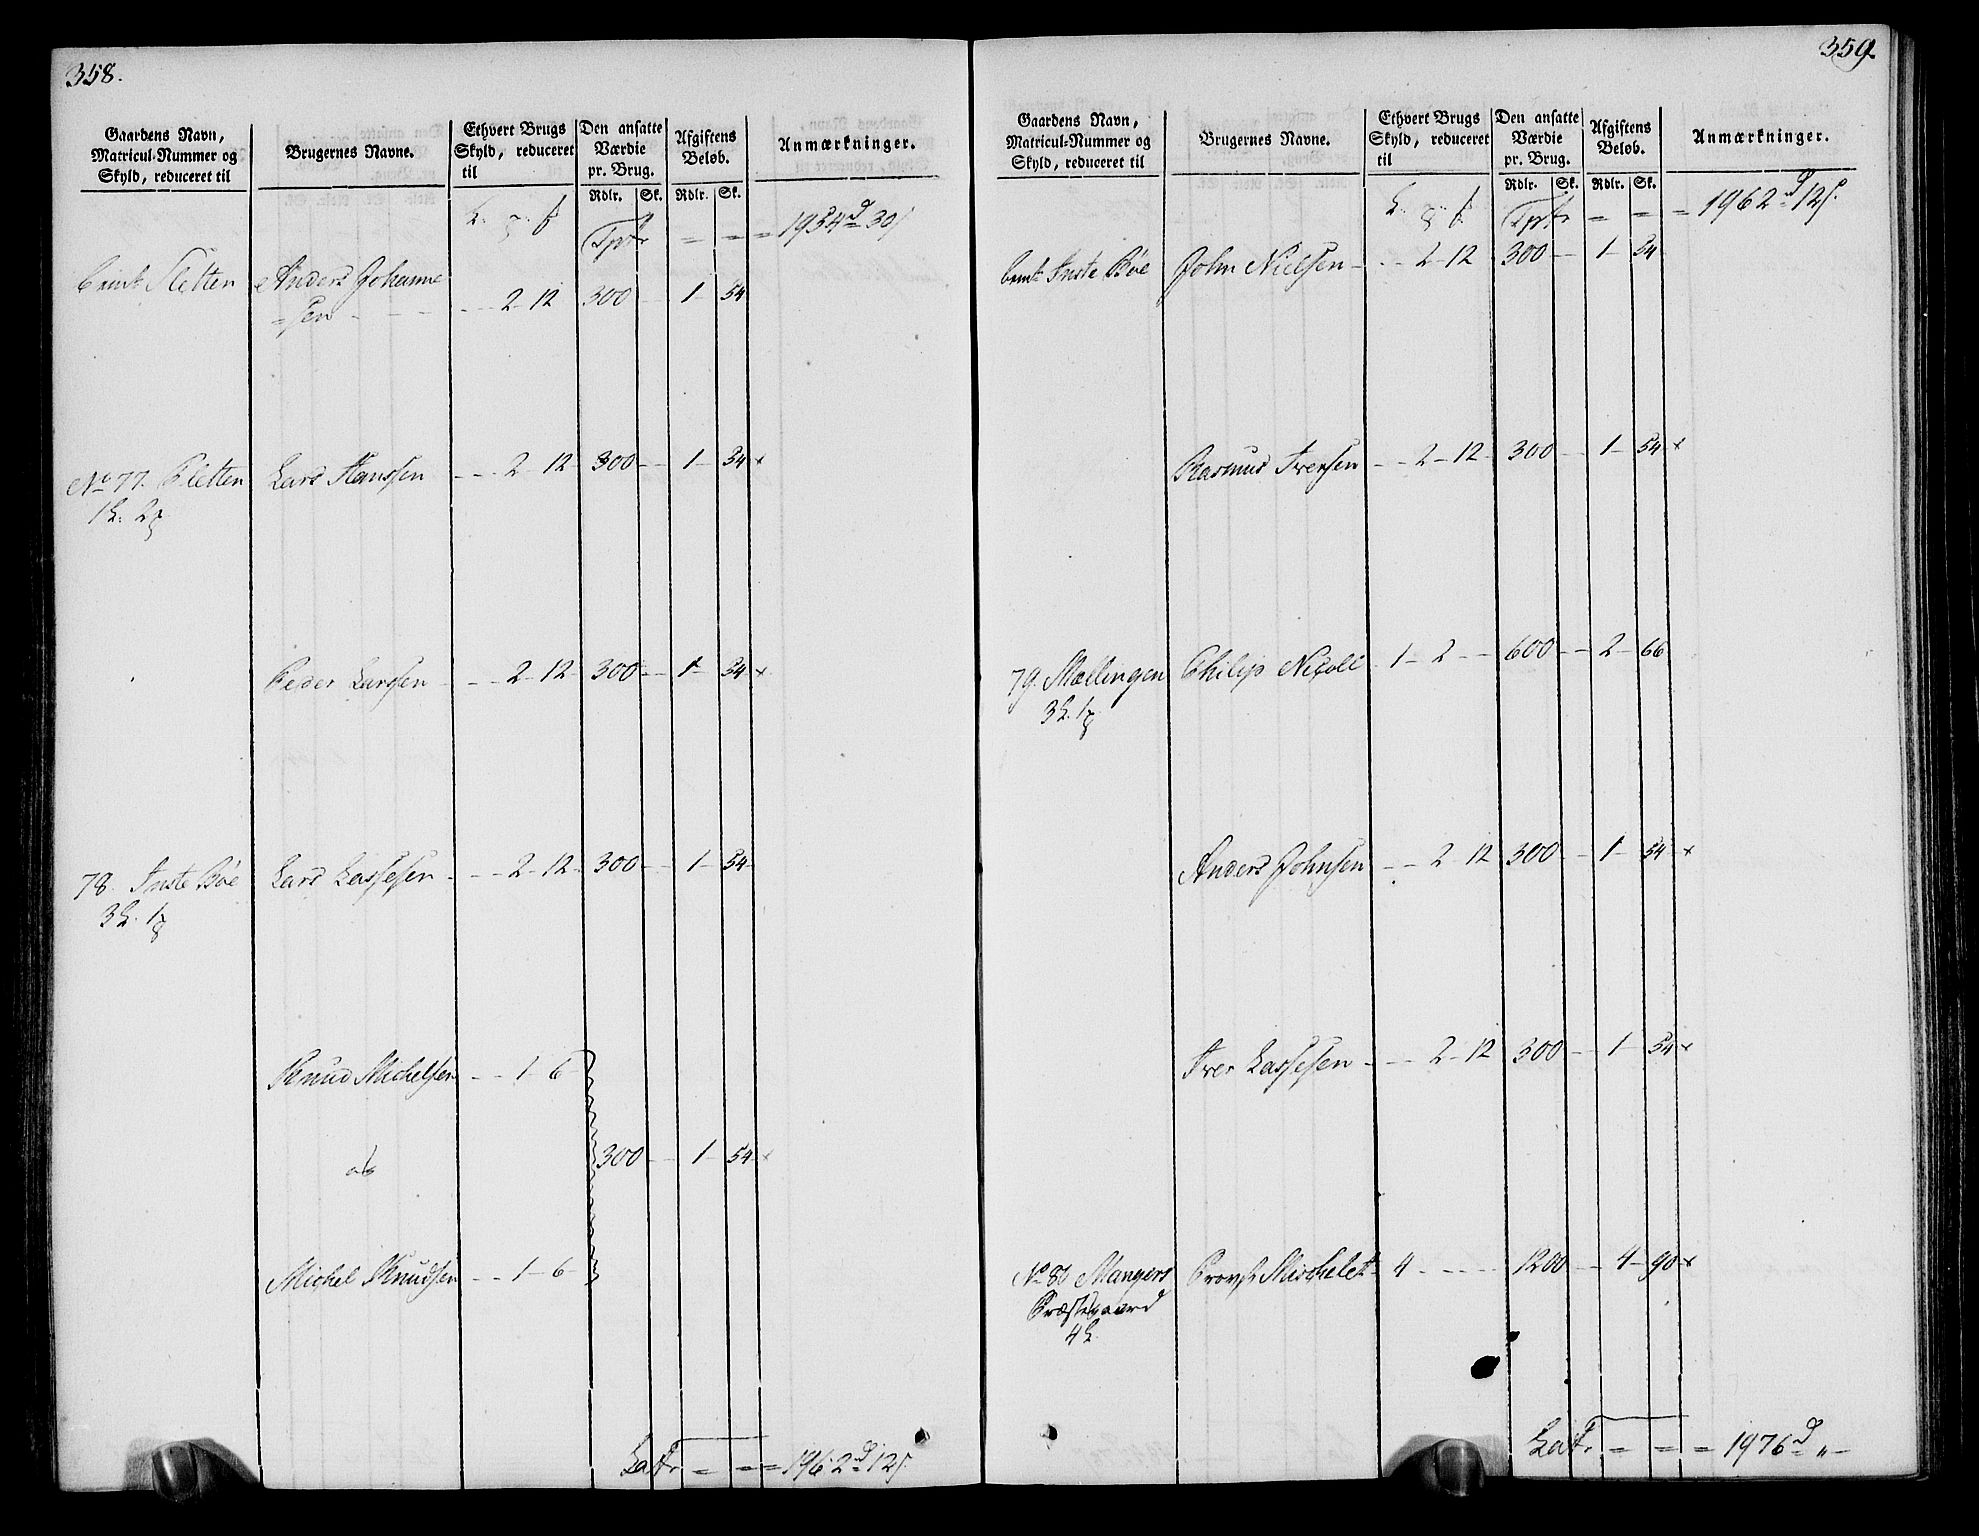 358.
Gaardens Navn, Matricul-Nummer og Skyld, reduceret til
Brugernes Navne.
Ethvert Brugs Skyld, reduceret til
Den ansatte Værdie pr. Brug.
Afgiftens Beløb.
Anmærkninger.
Rdlr. Sk. Rdlr. Sk.
Tptr = = = 1954 d 30 s
Sletten Anders Johanne
=sen - - - 2 - 12 300 - 1 - 54
No 77. Sletten Lars Hanssen - - 2 - 12 300 - 1 - 54 x
1 L: 2
Peder Larssen - - 2 - 12 300 - 1 - 54 x
78. Inste Bøe Lars Lassesen - - - 2 - 12 300 - 1 - 54
3 L. 1
Knud Michelsen - - 1 - 6
300 - 1 - 54 x
Michel Knudsen - - 1 - 6
Latr = = = 1962 d 12 s
359.
Gaardens Navn, Matricul-Nummer og Skyld, reduceret til
Brugernes Navne.
Ethvert Brugs Skyld, reduceret til
Den ansatte Værdie pr. Brug.
Afgiftens Beløb.
Anmærkninger.
Rdlr. Sk. Rdlr. Sk.
Tptr = = = 1962 d 12 s
Inste Bøe John Nielsen - - - 2 - 12 300 - 1 - 54
Rasmus Iversen - - - 2 - 12 300 - - 1 - 54 x
79. Mællingen Philip Nicoll - 1 - 2 - - 600 - - 2 - 66
3 L. 1
Anders Johnsen - - 2 12 300 - - 1 - 54 x
Iver Lassesen - - - 2 - 12 300 - - 1 - 54 x
No 80 Mangers Provst Michelet - 4 - - - - 1200 - - 4 - 90 x
Præstegaard
4 L.
Latr = = = 1976 d „ -